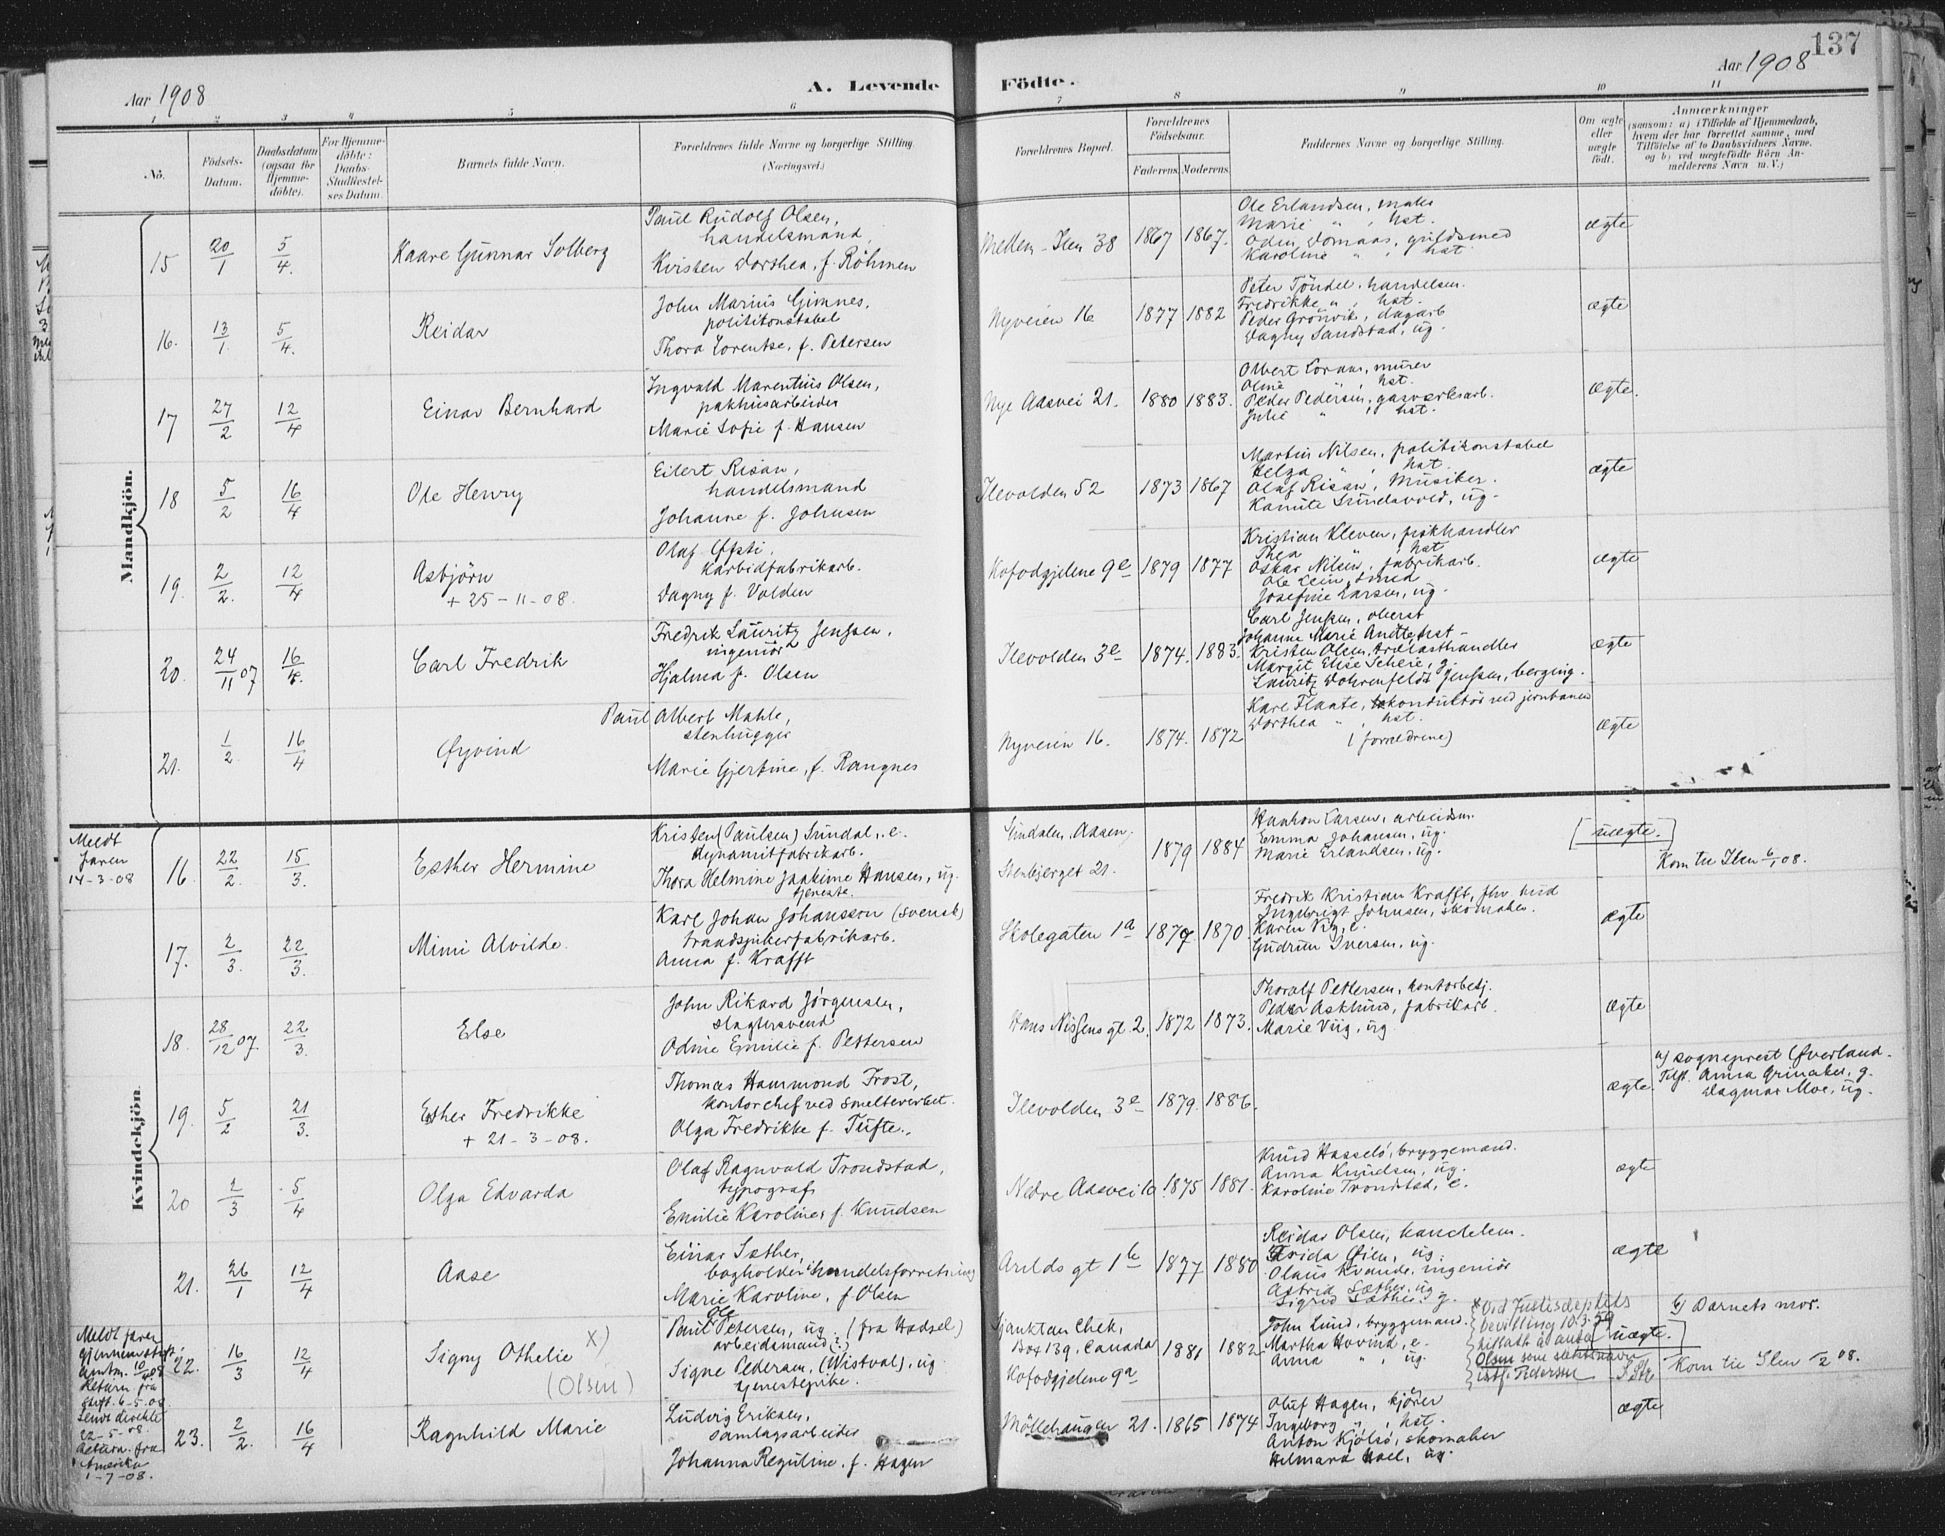 137
Aar 1908
A. Levende Födte.
Aar 1908
1 2 3 4 5 6 7 8 9 10 11
No.
Födsels-Datum.
Daabsdatum (ogsaa for Hjemme-döbte).
For Hjemme-döbte: Daabs-Stadfæstel-ses Datum.
Barnets fulde Navn.
Forældrenes fulde Navne og borgerlige Stilling. (Næringsvei.)
Forældrenes Bopæl.
Forældrenes Födselsaar.
Faderens Moderens
Faddernes Navne og borgerlige Stilling.
Om ægte eller uægte födt.
Anmærkninger
(saasom: a) i Tilfælde af Hjemmedaab, hvem der har forrettet samme, med Tilföielse af to Daabsvidners Navne, og b) ved uægtefödte Börn An-melderens Navn m. V.)
Mandkjön.
15 20/1 5/4. Kaare Gunnar Solberg
Paul Rudolf Olsen,
handelsmand,
Kristen Dorthea, f. Röhmen
Mellem-Ilen 38 1867 1867.
Ole Erlandsen, maler
Marie " , hst.
Odin Domaas, guldsmed
Karoline " , hst.
ægte
16. 13/1. 5/4. Reidar
John Marius Gimnes,
politikonstabel
Thora Lorentse, f. Petersen
Nyveien 16 1877 1882
Peter Töndel, handelsm.
Fredrikke " , hst.
Peder Grönvik, dagarb
Dagny Sandstad, ug.
ægte
17 27/2 12/4 Einar Bernhard
Ingvald Marentius Olsen,
pakhusarbeider
Marie Sofie f. Hansen
Nye Aasvei 21. 1880 1883.
Oline " , hst.
Peder Pedersen, gasværksarb.
Julie " , hst.
ægte.
18 5/2 16/4 Ole Henry
Eilert Risan,
handelsmand
Johanne f. Johnsen
Ilevolden 52 1873 1867
Martin Nilsen, politikonstabel
Helga " , hst.
Olaf Risan, Musiker.
ægte
19. 2/2. 12/4 Asbjörn
+ 25-11-08.
Olaf Öfsti,
karbidfabrikarb.
Dagny f. Valden
Kofodgjelene 9e 1879 1877
Kristian Kleven, fiskhandler
Thea " , hst.
Oskar Nilsen, fabrikarb.
Ole Lein, smed
Josefine Larsen, ug.
ægte
20. 24/11 07 16/4. Carl Fredrik
Fredrik Lauritz Jenssen,
ingeniör
Hjalma f. Olsen
Ilevolden 3e 1874. 1883.
Carl Jenssen, oberst
Kristen Olsen, trælasthandler
Margit Elise Scheie, g.
Lauritz Dorenfeldt Jenssen, berging.
ægte
21. 1/2. 16/4 Øyvind
Paul Albert Mahle,
stenhugger
Marie Gjertine, f. Rangnes
Nyveien 16. 1874. 1872
Karl Flaate, konduktör ved jernbanen
Dorthea " , hst.
(forældrene)
ægte
Kvindekjön
Meldt
faren
14-3-08
16. 22/2. 15/3. Esther Hermine
Kristen (Paulsen) Sundal, e.
dynamitfabrikarb.
Thora Helmine Joakime Hansen, ug.
tjeneste.
Sundalen, Aasen,
Stenbjerget 21.
1879 1884
Haakon Larsen, arbeidsm.
Emma Johansen, ug.
Marie Erlandsen, ug.
[uægte.]
Kom til Ilen 6/1 08.
17. 2/3. 22/3. Mimi Alvilde.
Karl Johan Johansson (svensk)
traadspikerfabrikarb.
Anna f. Krafft
Skolegaten 1a 1879 1870.
Fredrik Kristian Krafft, fhv. smed
Ingebrigt Johnsen, skomaker.
Karen Vig, e.
Gudrun Iversen, ug.
ægte
18. 28/12 07. 22/3. Else
John Rikard Jörgensen,
slagtersvend
Odine Emilie f. Pettersen
Hans Nissens gt 2. 1872 1873.
Thoralf Pettersen, kontorbetj.
Peder Asklund, fabrikarb.
Marie Viig, ug.
ægte
19. 5/2 21/3. Esther Fredrikke
+ 21-3-08.
Thomas Hammond Frost,
kontorchef ved smelteverket.
Olga Fredrikke f. Tufte.
Ilevolden 3e 1879. 1886.
ægte.
a) sogneprest Øverland.
Tilst. Anna Grinaker, g.
Dagmar Moe, ug.
20 2/3 5/4 Olga Edvarda
Olaf Ragnvald Trondstad,
typograf
Emilie Karoline, f. Knudsen
Nedre Aasvei 10. 1875 1881.
Knud Hasselö, bryggemand.
Anna Knudsen, ug.
Karoline Trondstad, e.
ægte
21. 26/1 12/4 Aase
Einar Sæther,
bogholder i handelsforretning
Marie Karoline, f. Olsen
Arilds gt 1b 1877 1880
Reidar Olsen, handelsm.
Frida Øien, ug.
Olaus Kvande, ingeniör
Astrid Sæther, ug
Sigrid Sæther, g.
ægte
Meldt faren
gjennem stift.
amtm. 10/4 08
Return fra
stift. 6-5-08
Sendt direkte
22-5-08.
Return. fra
Amerika
1-7-08.
22. 16/3 12/4 Signy Othelie x)
(Olsen)
Paul Ole Petersen, ug. (fra Hadsel)
arbeidsmand(?)
Signe Pedersen, (Wistval), ug.
tjenestepike.
Box 139, Canada
Kofodgjelene 9a
1881 1882
John Lund, bryggemand.
Martha Hovind, e.
Anna " , ug.
x Ved Justisdeptets
bevilling 10.3.59
tillatt å anta
Olsen som slektsnavn
istf. Pedersen
uægte.
b) Barnets mor.
Kom til Ilen 1/2 08.
23. 2/2. 16/4 Ragnhild Marie
Ludvig Eriksen,
samlagsarbeider
Johanna Reguline, f. Hagen
Möllehaugen 21. 1865 1874
Oluf Hagen, kjörer
Ingeborg " , hst.
Anton Kjölsö, skomaker
Helmara Hoel, ug.
ægte